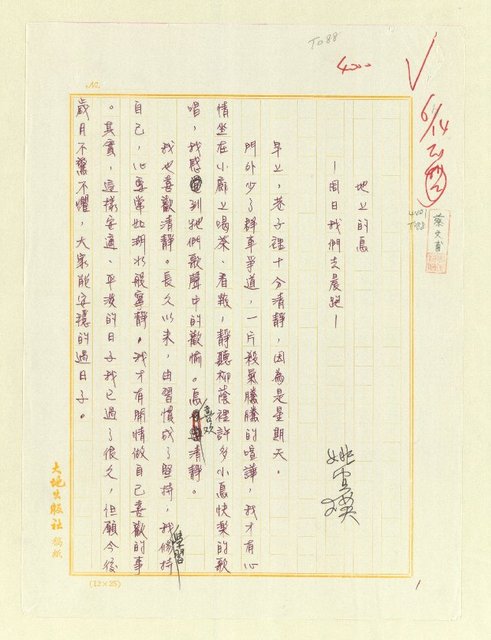 T088
4000
6/14
蔡文甫
No.
地上的鳥
—周日我們去晨跑—
姚宜瑛
早上，巷子裡十分清靜，因為是星期天。
門外少了群車爭道，一片殺氣騰騰的喧譁，我才有心
情坐在小廊上喝茶、看報，靜聽柳蔭裡許多小鳥快樂的歌
唱，我感到牠們歌聲中的歡愉。鳥喜欢清靜。
我也喜歡清靜。長久以來，由習慣成了堅持，我修持
自己，心要常如湖水般寧靜。我才有閒情做自己喜歡的事
。其實，這樣安適、平淡的日子我已過了很久，但願今後
歲月不驚不懼，大家能安穩的過日子。
大地出版社 稿紙
(12×25)
1